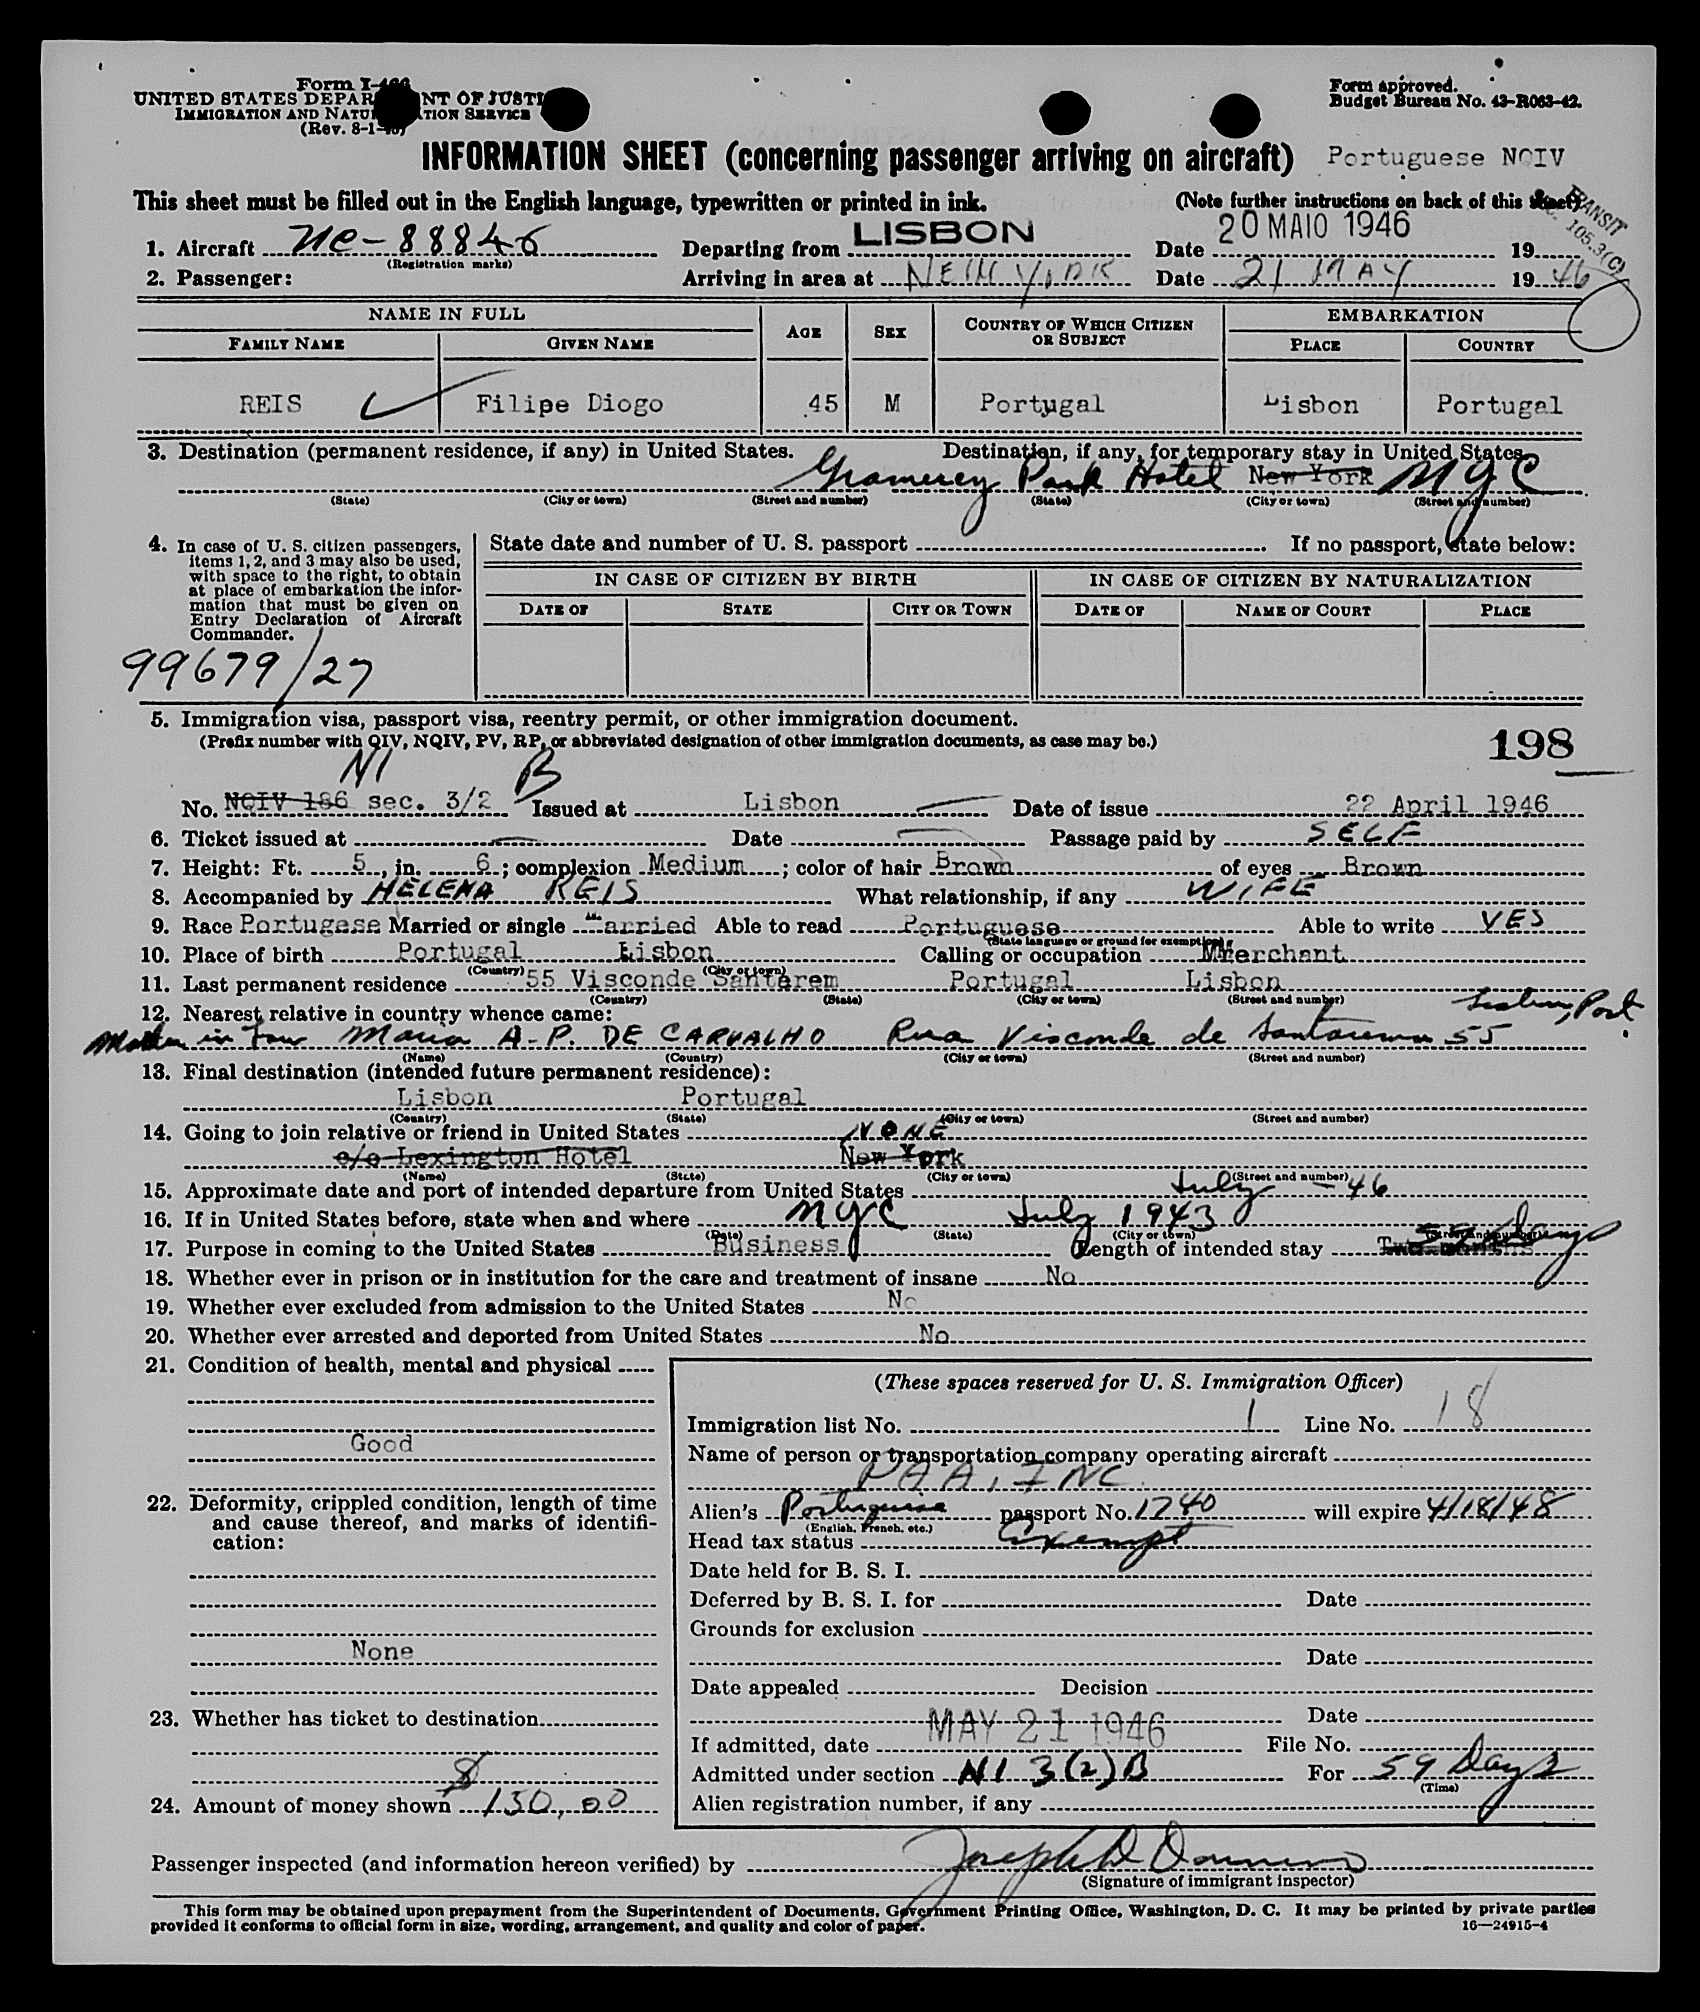 Form I-466
UNITED STATES DEPARTMENT OF JUSTICE
IMMIGRATION AND NATURALIZATION SERVICE
(Rev. 8-1-45)
Form approved.
Budget Bureau No. 43-R063-42.
INFORMATION SHEET (concerning passenger arriving on aircraft) Portuguese NQIV
This sheet must be filled out in the English language, typewritten or printed in ink. (Note further instructions on back of this sheet)
TRANSIT
Sec. 105.3(C)
1. Aircraft NC-88846 Departing from LISBON Date 20 MAIO 1946 19
(Registration marks)
2. Passenger: Arriving in area at NEW YORK Date 21 MAY 1946
NAME IN FULL AGE SEX COUNTRY OF WHICH CITIZEN OR SUBJECT EMBARKATION
FAMILY NAME GIVEN NAME PLACE COUNTRY
REIS Filipe Diogo 45 M Portugal Lisbon Portugal
3. Destination (permanent residence, if any) in United States. Destination, if any, for temporary stay in United States
Gramercy Park Hotel New York NYC
(State) (City or town) (Street and number) (State) (City or town) (Street and number)
4. In case of U. S. citizen passengers, items 1, 2, and 3 may also be used, with space to the right, to obtain at place of embarkation the information that must be given on Entry Declaration of Aircraft Commander.
State date and number of U. S. passport If no passport, state below:
IN CASE OF CITIZEN BY BIRTH IN CASE OF CITIZEN BY NATURALIZATION
DATE OF STATE CITY OR TOWN DATE OF NAME OF COURT PLACE
99679/27
5. Immigration visa, passport visa, reentry permit, or other immigration document.
(Prefix number with QIV, NQIV, PV, RP, or abbreviated designation of other immigration documents, as case may be.)
198
NI B
No. NQIV 186 sec. 3/2 Issued at Lisbon Date of issue 22 April 1946
6. Ticket issued at Date Passage paid by SELF
7. Height: Ft. 5, in. 6; complexion Medium; color of hair Brown of eyes Brown
8. Accompanied by HELENA REIS What relationship, if any WIFE
9. Race Portugese Married or single Married Able to read Portuguese Able to write YES
(State language or ground for exemption)
10. Place of birth Portugal Lisbon Calling or occupation Merchant
(Country) (City or town)
11. Last permanent residence 55 Visconde Santarem Portugal Lisbon
(Country) (State) (City or town) (Street and number)
12. Nearest relative in country whence came: Lisbon, Port.
Mother in law Maria A-P. DE CARVALHO Rua Visconde de Santarem 55
(Name) (Country) (City or town) (Street and number)
13. Final destination (intended future permanent residence):
Lisbon Portugal
(Country) (State) (City or town) (Street and number)
14. Going to join relative or friend in United States NONE
c/o Lexington Hotel New York
(Name) (State) (City or town) (Street and number)
15. Approximate date and port of intended departure from United States July - 46
16. If in United States before, state when and where NYC July 1943
(Date) (State) (City or town) (Street and number)
17. Purpose in coming to the United States Business Length of intended stay Two months 59 days
18. Whether ever in prison or in institution for the care and treatment of insane No
19. Whether ever excluded from admission to the United States No
20. Whether ever arrested and deported from United States No
21. Condition of health, mental and physical
Good
22. Deformity, crippled condition, length of time and cause thereof, and marks of identification:
None
23. Whether has ticket to destination
24. Amount of money shown $150.00
(These spaces reserved for U. S. Immigration Officer)
Immigration list No. 1 Line No. 18
Name of person or transportation company operating aircraft
PAA, INC.
Alien's Portuguese passport No. 1740 will expire 4/18/48
(English, French, etc.)
Head tax status Exempt
Date held for B. S. I.
Deferred by B. S. I. for Date
Grounds for exclusion
Date
Date appealed Decision
Date
If admitted, date MAY 21 1946 File No.
Admitted under section NI 3(2)B For 59 Days
(Time)
Alien registration number, if any
Passenger inspected (and information hereon verified) by Joseph D
(Signature of immigrant inspector)
This form may be obtained upon prepayment from the Superintendent of Documents, Government Printing Office, Washington, D. C. It may be printed by private parties
provided it conforms to official form in size, wording, arrangement, and quality and color of paper. 16—24915-4